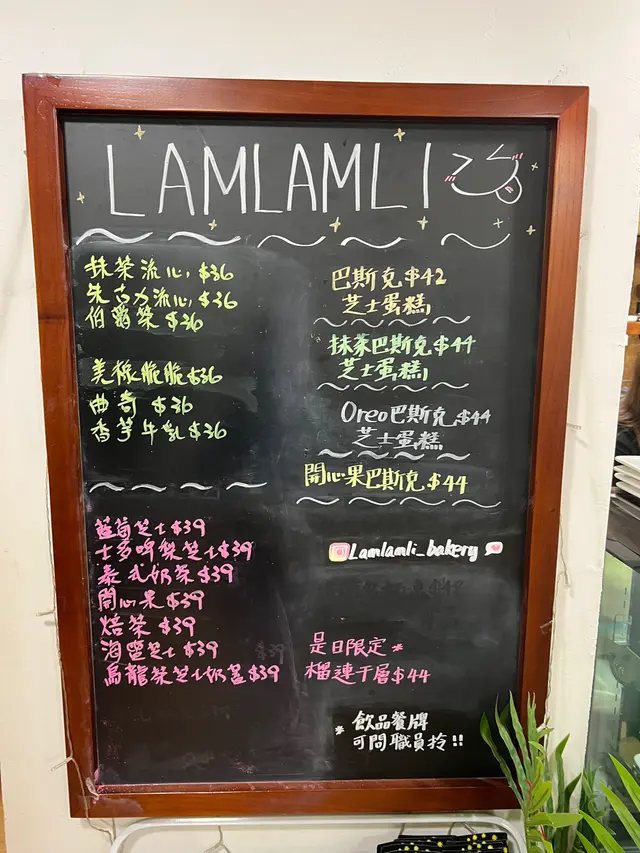 LAMLAMLI
抹茶流心 $36
朱古力流心 $36
伯爵茶 $36
美祿脆脆 $36
曲奇 $36
香芋牛乳 $36
藍莓芝士 $39
士多啤梨芝士 $39
泰式奶茶 $39
開心果 $39
焙茶 $39
海鹽芝士 $39
烏龍茶芝士奶蓋 $39
巴斯克 $42
芝士蛋糕
抹茶巴斯克 $44
芝士蛋糕
Oreo巴斯克 $44
芝士蛋糕
開心果巴斯克 $44
Lamlamli_bakery
是日限定*
榴連千層 $44
* 飲品餐牌
可問職員拎!!